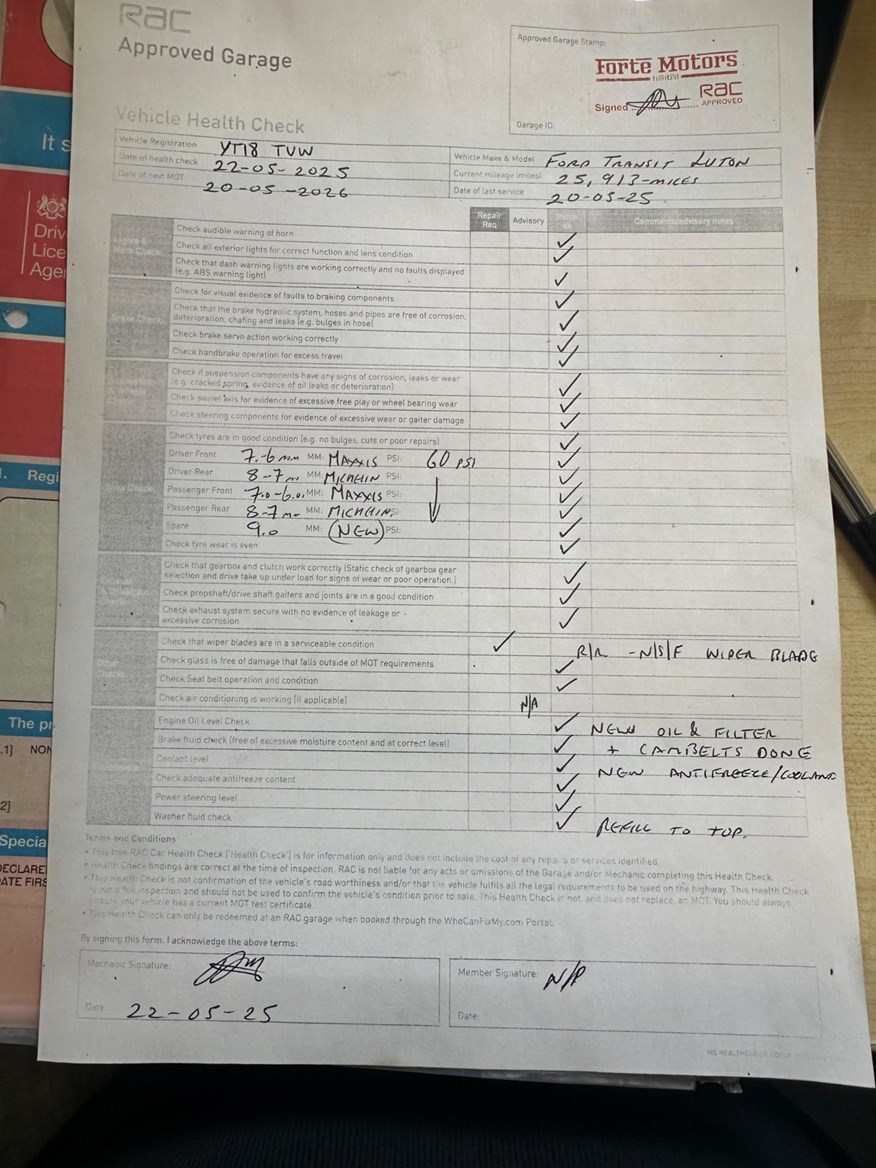 RAC
Approved Garage
Approved Garage Stamp:
Forte Motors
LIMITED
Signed
RAC
APPROVED
Garage ID:
Vehicle Health Check
Vehicle Registration YT18 TUW
Vehicle Make & Model FORD TRANSIT LUTON
Date of health check 22-05-2025
Current mileage (miles) 25,913-MILES
Date of next MOT 20-05-2026
Date of last service 20-05-25
Repair Req Advisory Comments/advisory notes
Check audible warning of horn ✓
Check all exterior lights for correct function and lens condition ✓
Check that dash warning lights are working correctly and no faults displayed
(e.g. ABS warning light) ✓
Check for visual evidence of faults to braking components ✓
Check that the brake hydraulic system, hoses and pipes are free of corrosion,
deterioration, chafing and leaks (e.g. bulges in hose) ✓
Check brake servo action working correctly ✓
Check handbrake operation for excess travel ✓
Check if suspension components have any signs of corrosion, leaks or wear
(e.g. cracked spring, evidence of oil leaks or deterioration) ✓
Check swivel axis for evidence of excessive free play or wheel bearing wear ✓
Check steering components for evidence of excessive wear or gaiter damage ✓
Check tyres are in good condition (e.g. no bulges, cuts or poor repairs) ✓
Driver Front 7.-6mm MM: MAXXIS PSI: 60 PSI ✓
Driver Rear 8-7m MM: MICHELIN PSI: ✓
Passenger Front 7.0-6.0 MM: MAXXIS PSI: ✓
Passenger Rear 8-7m MM: MICHELIN PSI: ✓
Spare 9.0 MM: (NEW) PSI: ✓
Check tyre wear is even ✓
Check that gearbox and clutch work correctly (Static check of gearbox gear
selection and drive take up under load for signs of wear or poor operation.) ✓
Check propshaft/drive shaft gaiters and joints are in a good condition ✓
Check exhaust system secure with no evidence of leakage or
excessive corrosion ✓
Check that wiper blades are in a serviceable condition ✓ R/R -N/S/F WIPER BLADE
Check glass is free of damage that falls outside of MOT requirements ✓
Check Seat belt operation and condition ✓
Check air conditioning is working (if applicable) N/A
Engine Oil Level Check ✓ NEW OIL & FILTER
Brake fluid check (free of excessive moisture content and at correct level) ✓ + CAMBELTS DONE
Coolant level ✓ NEW ANTIFREEZE/COOLANT
Check adequate antifreeze content ✓
Power steering level ✓
Washer fluid check ✓ REFILL TO TOP.
Terms and Conditions
• This free RAC Car Health Check ('Health Check') is for information only and does not include the cost of any repairs or services identified.
• Health Check findings are correct at the time of inspection. RAC is not liable for any acts or omissions of the Garage and/or Mechanic completing this Health Check.
• This Health Check is not confirmation of the vehicle's road worthiness and/or that the vehicle fulfils all the legal requirements to be used on the highway. This Health Check
is not a full inspection and should not be used to confirm the vehicle's condition prior to sale. This Health Check is not, and does not replace, an MOT. You should always
ensure your vehicle has a current MOT test certificate.
• This Health Check can only be redeemed at an RAC garage when booked through the WhoCanFixMy.com Portal.
By signing this form, I acknowledge the above terms:
Mechanic Signature:
Member Signature: N/A
Date: 22-05-25
Date:
It s
Driv
Lice
Agen
Regi
The pr
.1] NON
2]
Specia
DECLARE
ATE FIRS